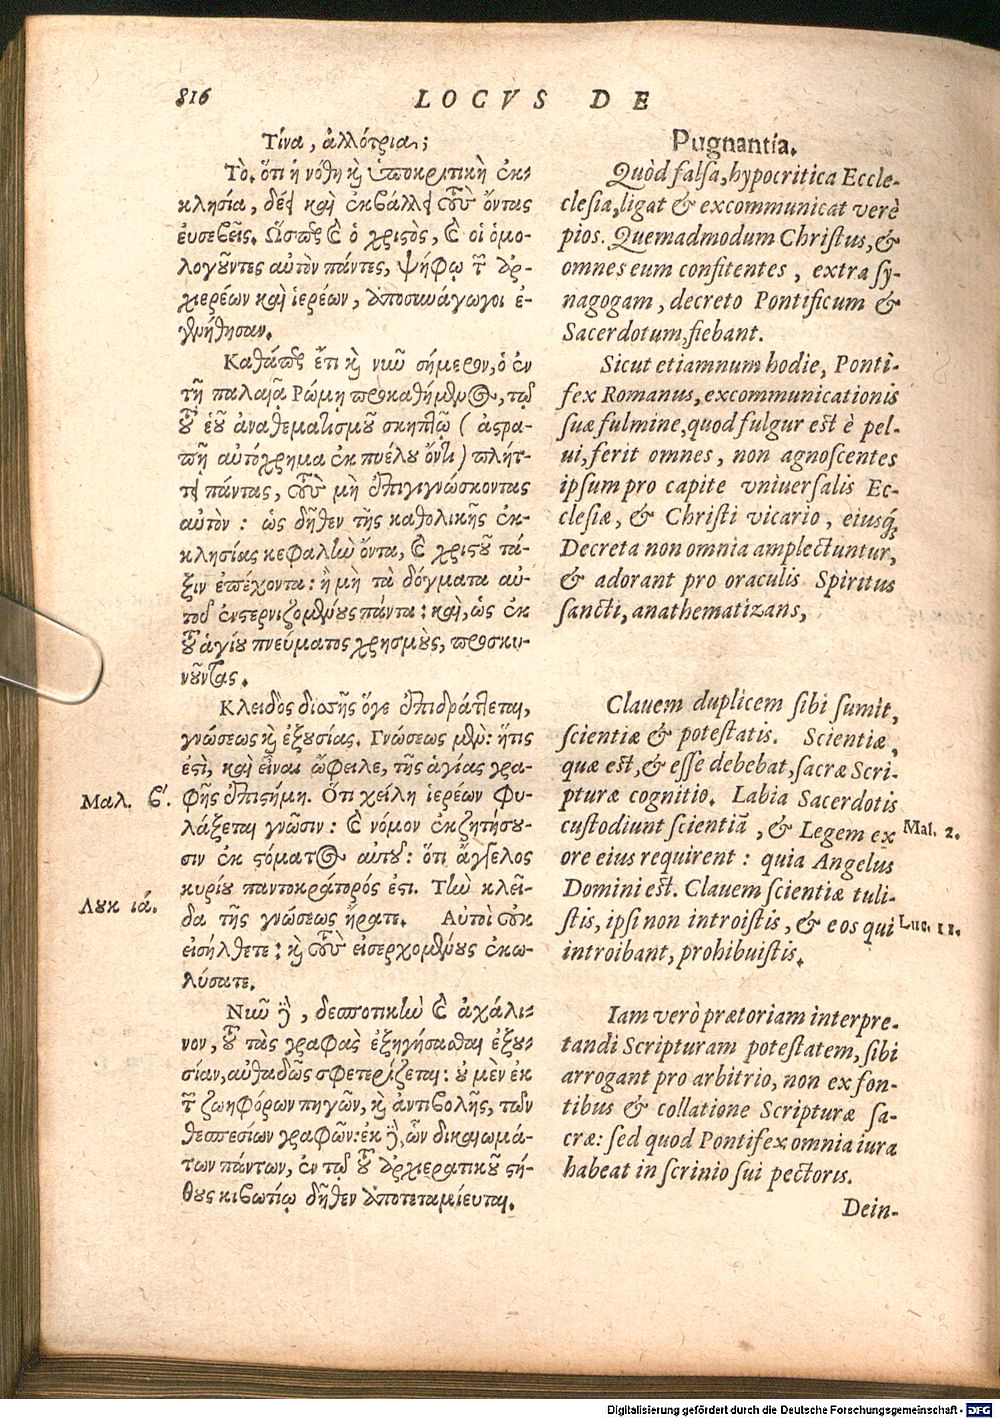 816
LOCVS DE
Τίνα, ἀλλότρια;
Τὸ. ὅτι ἡ νόθη καὶ ὑποκριτικὴ ἐκ-
κλησία, δεῖ καὶ ἐκβάλλει τοὺς ὄντας
εὐσεβεῖς. Ὥσπερ καὶ ὁ χριστὸς, καὶ οἱ ὁμο-
λογοῦντες αὐτὸν πάντες, ψήφῳ τῶν ἀρ-
χιερέων καὶ ἱερέων, ἀποσυνάγωγοι ἐ-
γενήθησαν.
Καθάπερ ἔτι καὶ νυῦ σήμερον, ὁ ἐν
τῇ παλαιᾷ Ρώμῃ προκαθήμενος, τῷ
τοῦ ἑοῦ ἀναθεματισμοῦ σκηπτῷ (ἀστρα-
πῇ αὐτόχρημα ἐκ πυέλου ὄντι) πλήτ-
τει πάντας, τοὺς μὴ ἐπιγιγνώσκοντας
αὐτὸν: ὡς δῆθεν τῆς καθολικῆς ἐκ-
κλησίας κεφαλὴν ὄντα, καὶ χριστοῦ τά-
ξιν ἐπέχοντα: ἢ μὴ τὰ δόγματα αὐ-
τοῦ ἐνστερνιζομένους πάντα: καὶ, ὡς ἐκ
τοῦ ἁγίου πνεύματος χρησμοὺς, προσκυ-
νοῦντας.
Κλειδὸς διοσῆς ὅγε ἐπιδράττεται,
γνώσεως καὶ ἐξουσίας. Γνώσεως μὲν: ἥτις
ἐστὶ, καὶ εἶναι ὤφειλε, τῆς ἁγίας γρα-
Μαλ. β΄. φῆς ἐπιστήμη. Ὅτι χείλη ἱερέων φυ-
λάξεται γνῶσιν: καὶ νόμον ἐκζητήσου-
σιν ἐκ στόματος αὐτοῦ: ὅτι ἄγγελος
κυρίου παντοκράτορός ἐστι. Τὴν κλεῖ-
Λουκ ιά. δα τῆς γνώσεως ἤρατε. Αὐτοὶ οὐκ
εἰσήλθετε: καὶ τοὺς εἰσερχομένους ἐκω-
λύσατε.
Νυῦ δὲ, δεσποτικὴν καὶ ἀχάλι-
νον, τοῦ τὰς γραφὰς ἐξηγήσασθαι ἐξου-
σίαν, αὐθαδῶς σφετερίζεται: οὐ μὲν ἐκ
τῶν ζωηφόρων πηγῶν, καὶ ἀντιβολῆς, τῶν
θεσπεσίων γραφῶν: ἐκ δὲ, ὧν δικαιωμά-
των πάντων, ἐν τῷ τοῦ ἀρχιερατικοῦ στή-
θους κιβωτίῳ δῆθεν ἀποτεταμίευται.
Pugnantia.
Quòd falsa, hypocritica Eccle-
clesia, ligat & excommunicat verè
pios. Quemadmodum Christus, &
omnes eum confitentes, extra sy-
nagogam, decreto Pontificum &
Sacerdotum, fiebant.
Sicut etiamnum hodie, Ponti-
fex Romanus, excommunicationis
suæ fulmine, quod fulgur est è pel-
ui, ferit omnes, non agnoscentes
ipsum pro capite vniuersalis Ec-
clesiæ, & Christi vicario, eiusq́;
Decreta non omnia amplectuntur,
& adorant pro oraculis Spiritus
sancti, anathematizans,
Clauem duplicem sibi sumit,
scientiæ & potestatis. Scientiæ,
quæ est, & esse debebat, sacræ Scri-
pturæ cognitio. Labia Sacerdotis
custodiunt scientiā, & Legem ex Mal. 2.
ore eius requirent: quia Angelus
Domini est. Clauem scientiæ tuli-
stis, ipsi non introistis, & eos qui Luc. 11.
introibant, prohibuistis.
Iam verò prætoriam interpre-
tandi Scripturam potestatem, sibi
arrogant pro arbitrio, non ex fon-
tibus & collatione Scripturæ sa-
cræ: sed quod Pontifex omnia iura
habeat in scrinio sui pectoris.
Dein-
Digitalisierung gefördert durch die Deutsche Forschungsgemeinschaft - DFG